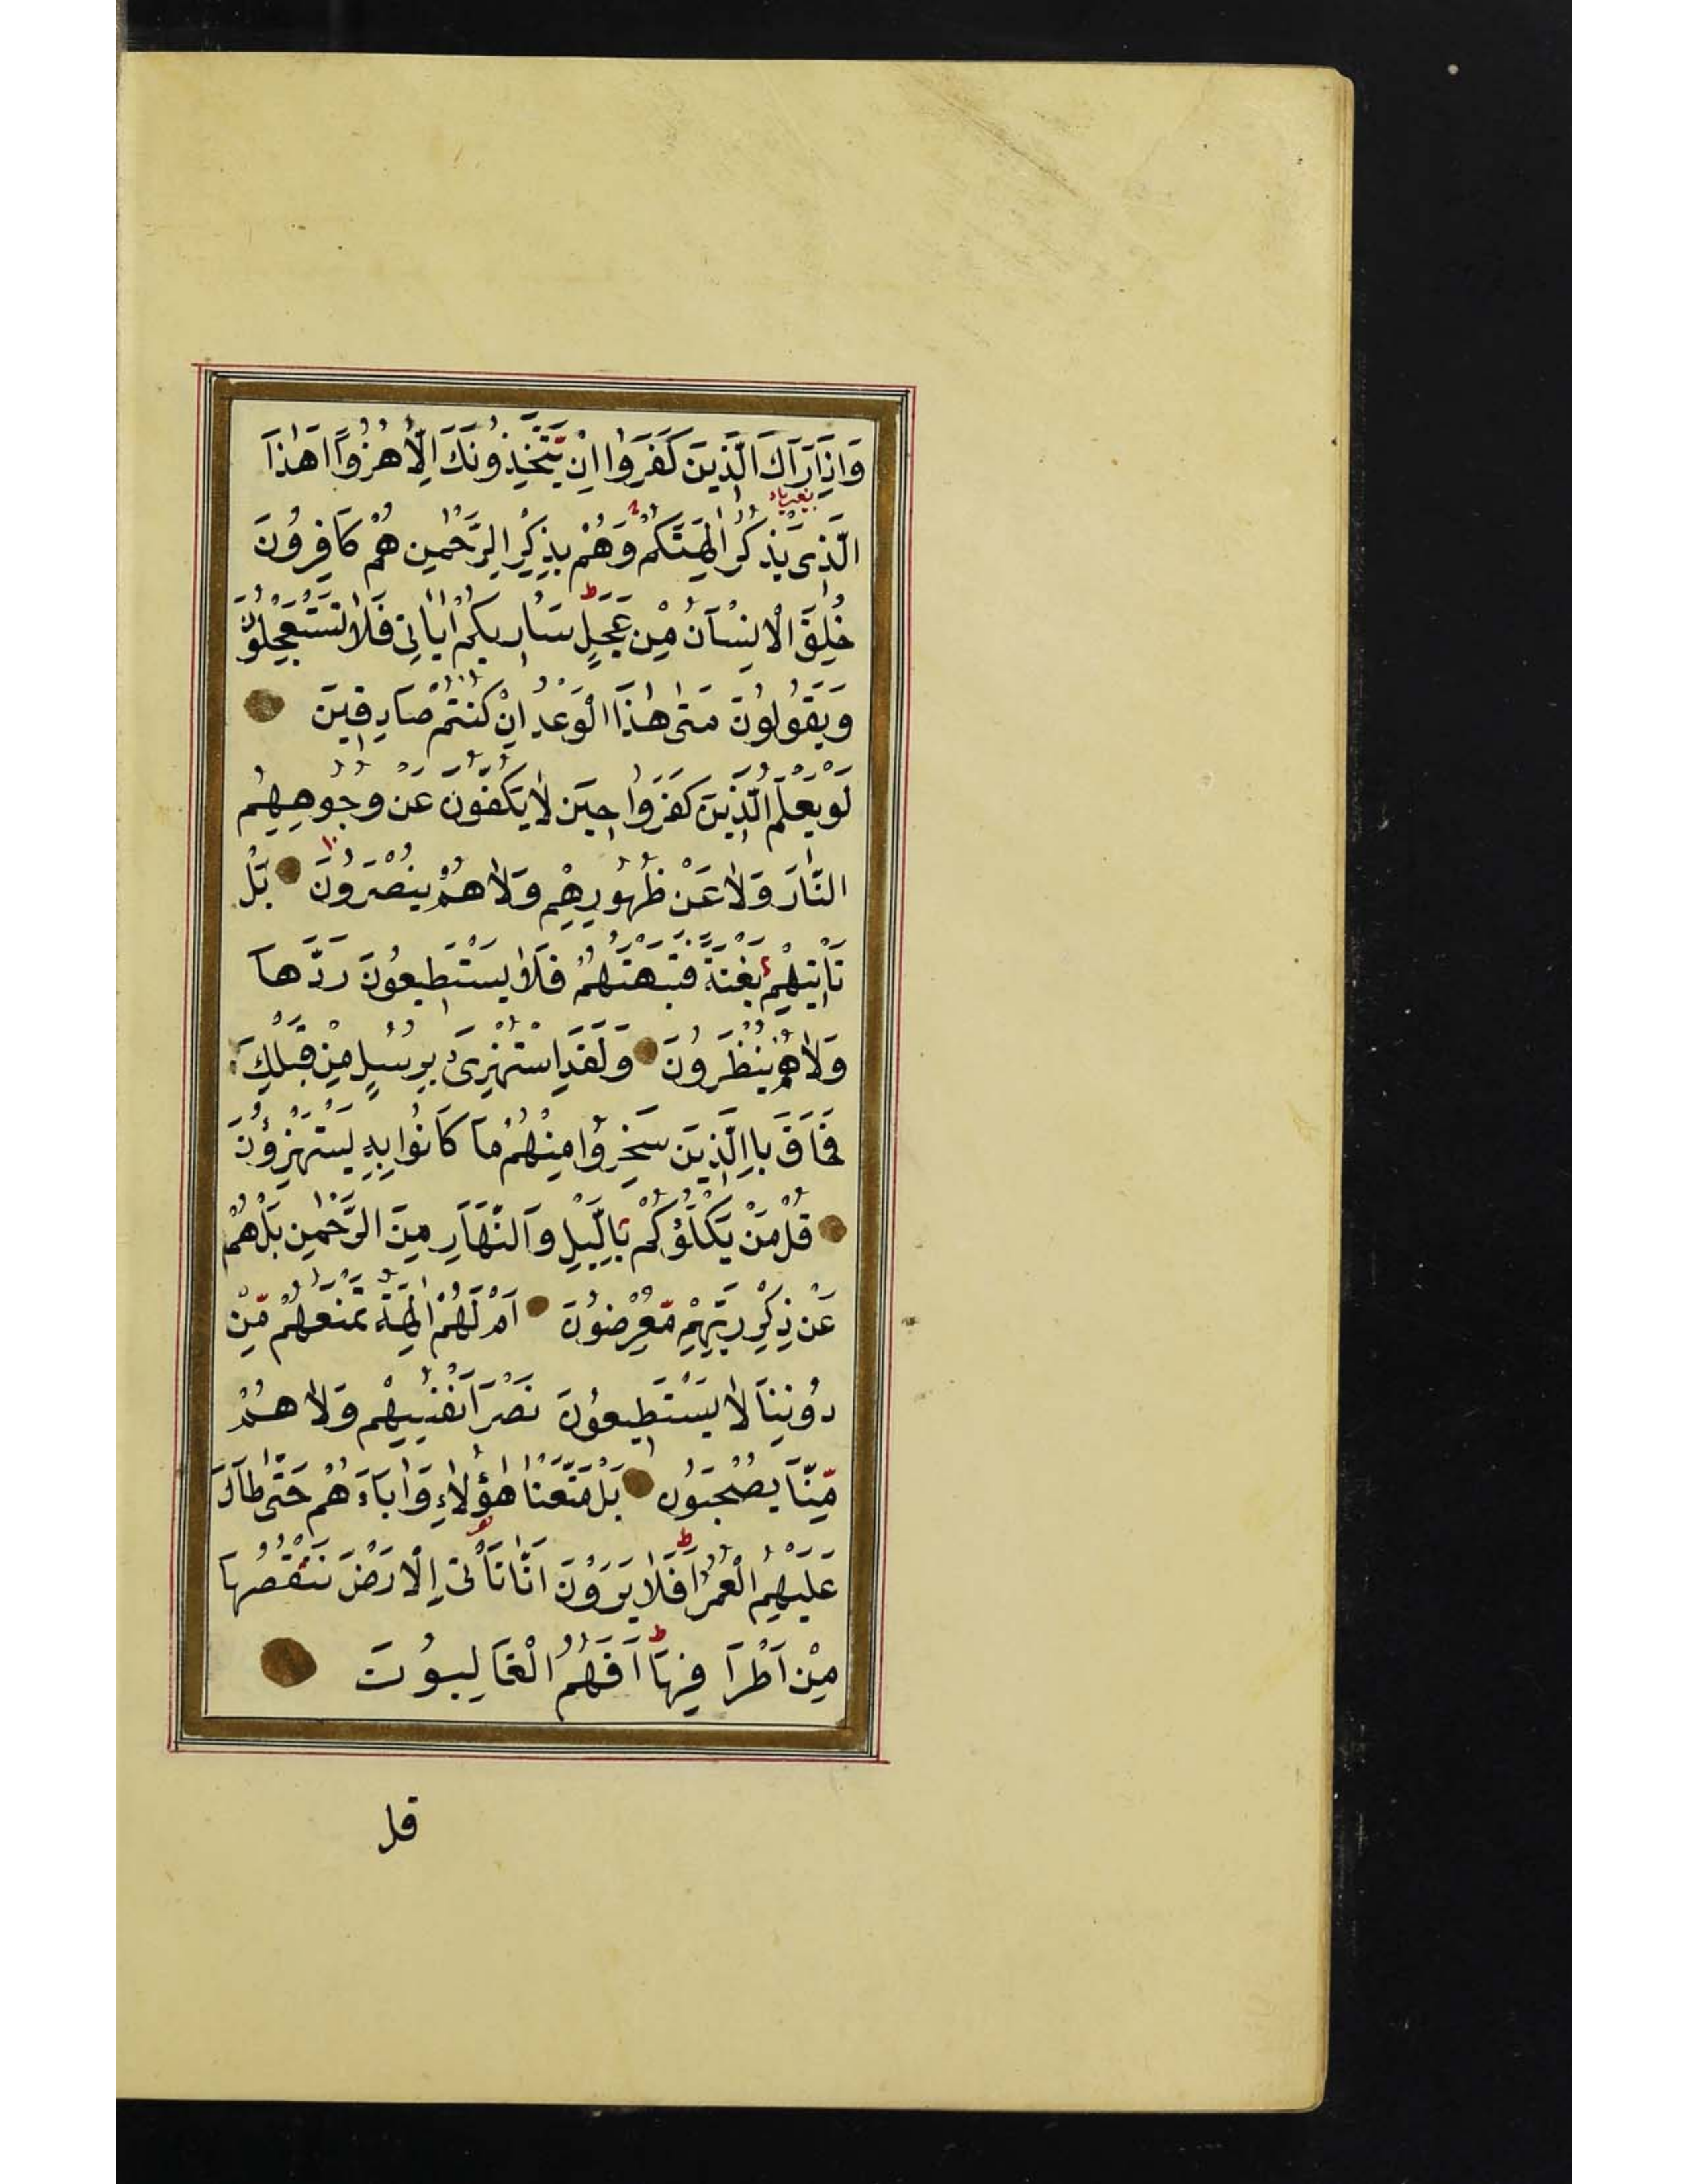 وَاِذَا رَاٰكَ الَّذِينَ كَفَرُوا اِنْ يَتَّخِذُونَكَ اِلَّا هُزُوًا اَهٰذَا
الَّذِى يَذْكُرُ اٰلِهَتَكُمْ وَهُمْ بِذِكْرِ الرَّحْمٰنِ هُمْ كَافِرُونَ
خُلِقَ الْاِنْسَانُ مِنْ عَجَلٍ سَاُرِيكُمْ اٰيَاتِى فَلَا تَسْتَعْجِلُونِ
وَيَقُولُونَ مَتٰى هٰذَا الْوَعْدُ اِنْ كُنْتُمْ صَادِقِينَ
لَوْ يَعْلَمُ الَّذِينَ كَفَرُوا حِينَ لَا يَكُفُّونَ عَنْ وُجُوهِهِمُ
النَّارَ وَلَا عَنْ ظُهُورِهِمْ وَلَا هُمْ يُنْصَرُونَ بَلْ
تَاْتِيهِمْ بَغْتَةً فَتَبْهَتُهُمْ فَلَا يَسْتَطِيعُونَ رَدَّهَا
وَلَا هُمْ يُنْظَرُونَ وَلَقَدِ اسْتُهْزِئَ بِرُسُلٍ مِنْ قَبْلِكَ
فَحَاقَ بِالَّذِينَ سَخِرُوا مِنْهُمْ مَا كَانُوا بِهِ يَسْتَهْزِؤُنَ
قُلْ مَنْ يَكْلَؤُكُمْ بِالَّيْلِ وَالنَّهَارِ مِنَ الرَّحْمٰنِ بَلْ هُمْ
عَنْ ذِكْرِ رَبِّهِمْ مُعْرِضُونَ اَمْ لَهُمْ اٰلِهَةٌ تَمْنَعُهُمْ مِنْ
دُونِنَا لَا يَسْتَطِيعُونَ نَصْرَ اَنْفُسِهِمْ وَلَا هُمْ
مِنَّا يُصْحَبُونَ بَلْ مَتَّعْنَا هٰؤُلَاءِ وَاٰبَاءَهُمْ حَتّٰى طَالَ
عَلَيْهِمُ الْعُمُرُ اَفَلَا يَرَوْنَ اَنَّا نَاْتِى الْاَرْضَ نَنْقُصُهَا
مِنْ اَطْرَافِهَا اَفَهُمُ الْغَالِبُونَ
قل